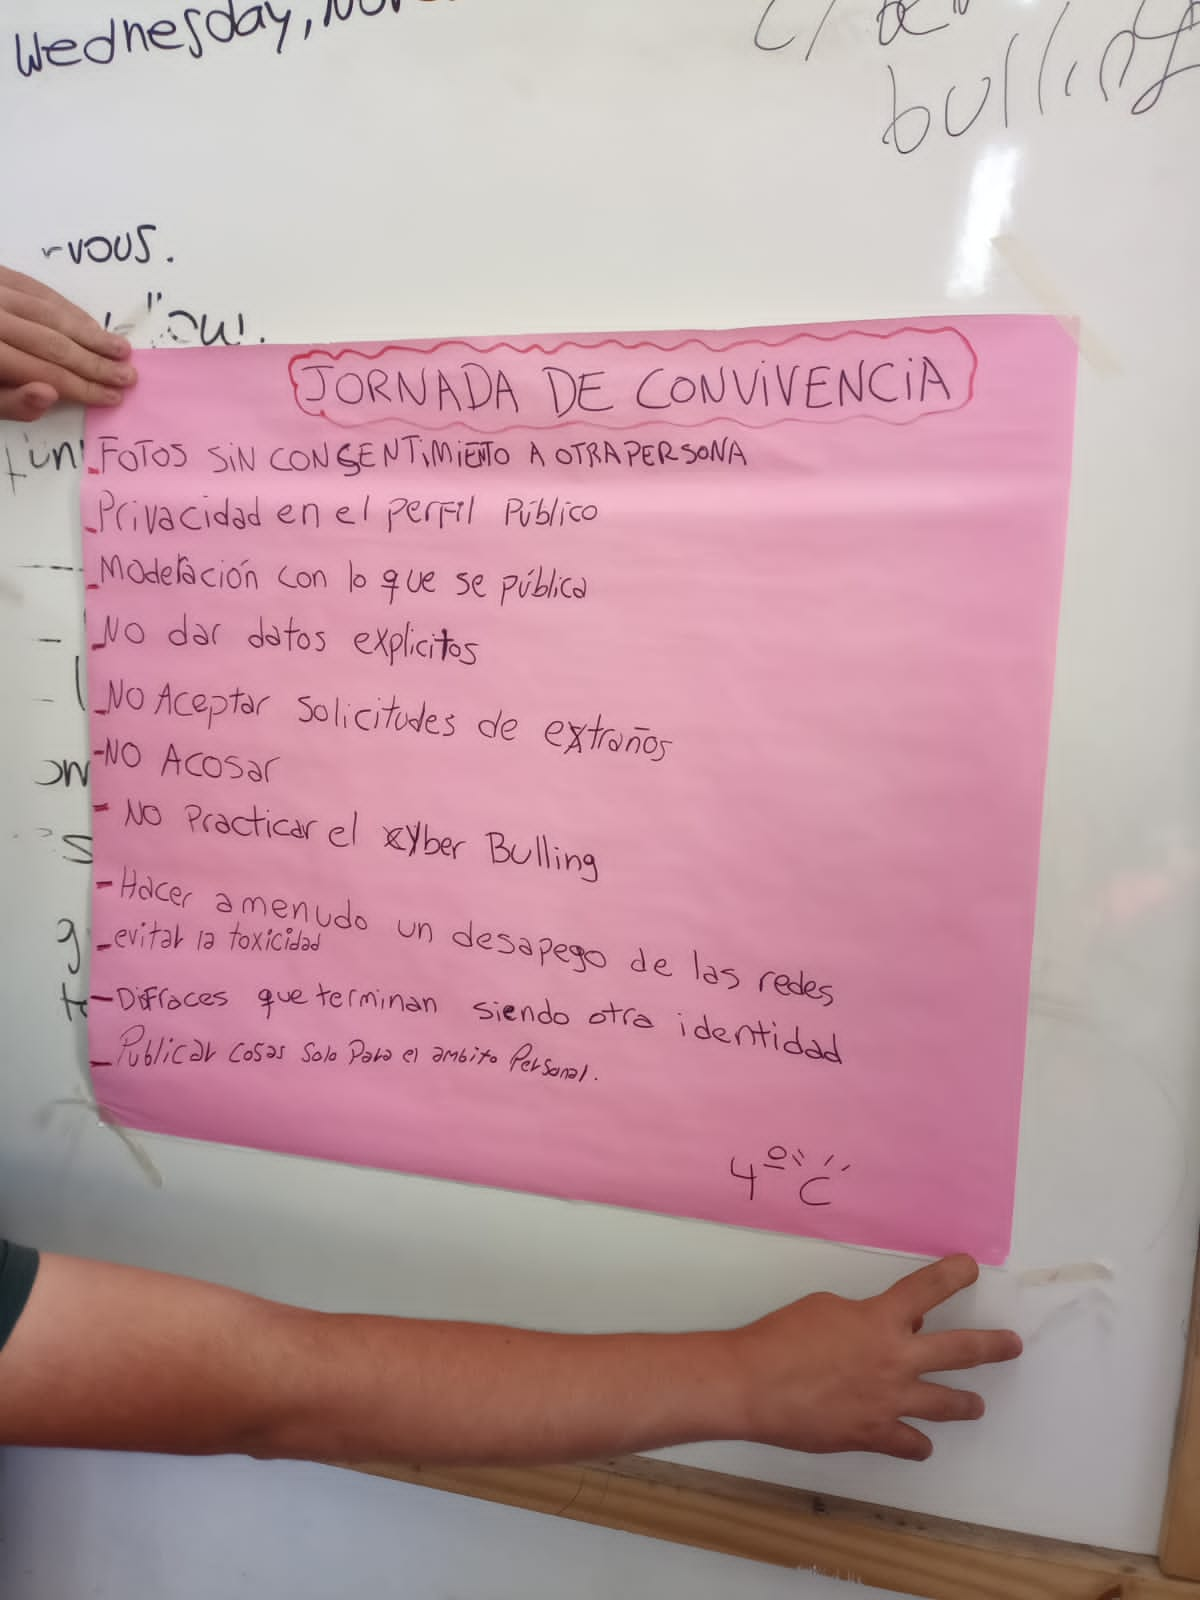 Wednesday,
bulling
JORNADA DE CONVIVENCIA
- FOTOS SIN CONSENTIMIENTO A OTRA PERSONA
- Privacidad en el perfil Público
- Moderación con lo que se pública
- NO dar datos explicitos
- NO Aceptar solicitudes de extraños
- NO Acosar
- NO Practicar el xyber Bulling
- Hacer a menudo un desapego de las redes
- evitar la toxicidad
- Disfraces que terminan siendo otra identidad
- Publicar cosas solo para el ambito Personal.
4º "C"